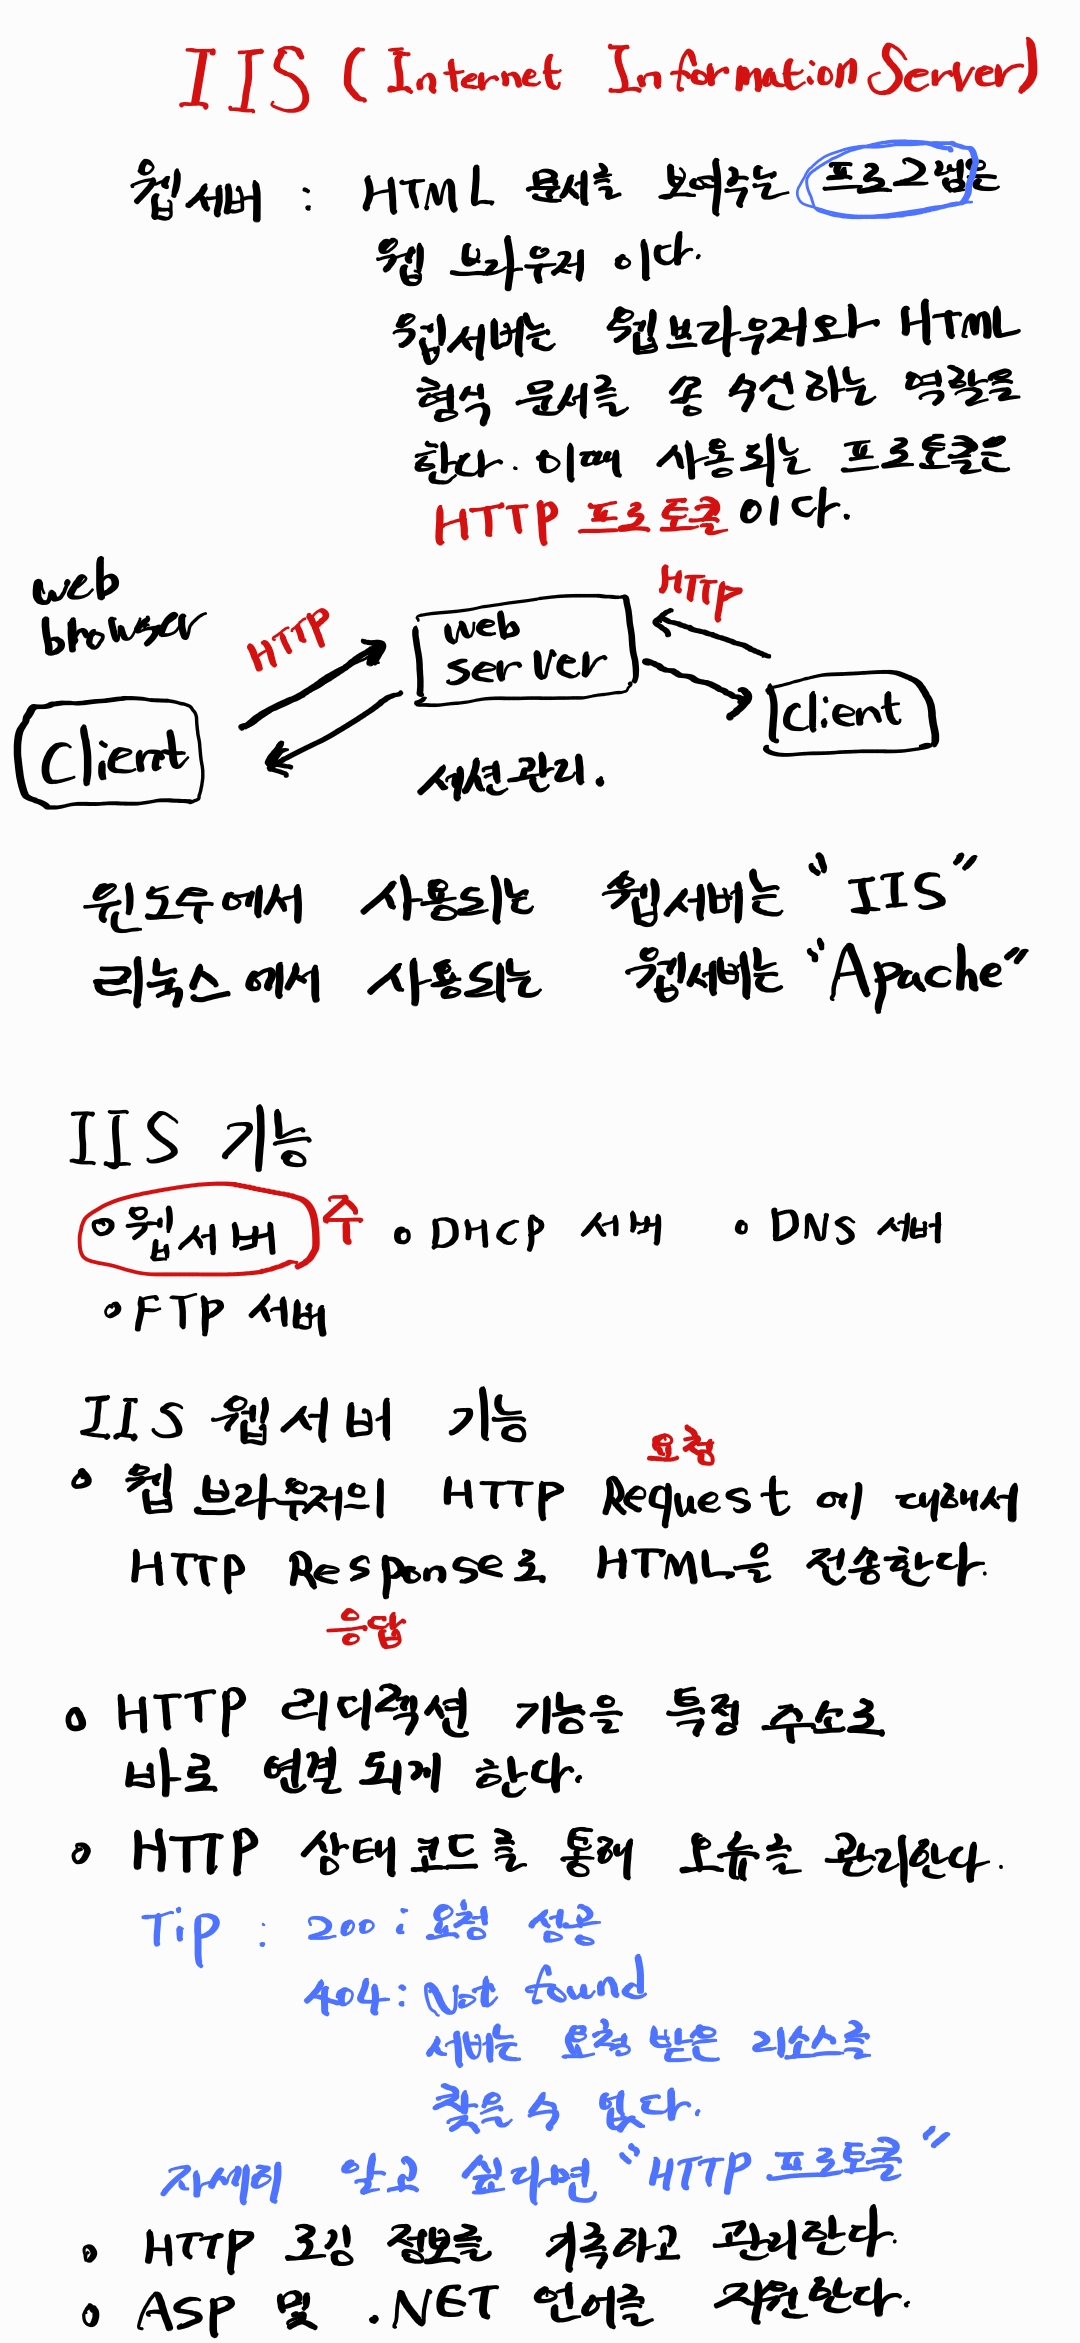 IIS (Internet Information Server)
웹서버 : HTML 문서를 보여주는 프로그램은
웹 브라우저 이다.
웹서버는 웹브라우저와 HTML
형식 문서를 송 수신하는 역할을
한다. 이때 사용되는 프로토콜은
HTTP 프로토콜 이다.
web
browser
HTTP
web
server
HTTP
Client
client
세션관리.
윈도우에서 사용되는 웹서버는 "IIS"
리눅스에서 사용되는 웹서버는 "Apache"
IIS 기능
o 웹서버 주 o DHCP 서버 o DNS 서버
o FTP 서버
IIS 웹서버 기능
요청
o 웹 브라우저의 HTTP Request 에 대해서
HTTP Response로 HTML을 전송한다.
응답
o HTTP 리디렉션 기능을 특정 주소로
바로 연결 되게 한다.
o HTTP 상태코드를 통해 오류를 관리한다.
Tip : 200 : 요청 성공
404 : Not found
서버는 요청 받은 리소스를
찾을 수 없다.
자세히 알고 싶다면 "HTTP 프로토콜"
o HTTP 로깅 정보를 기록하고 관리한다.
o ASP 및 .NET 언어를 지원한다.